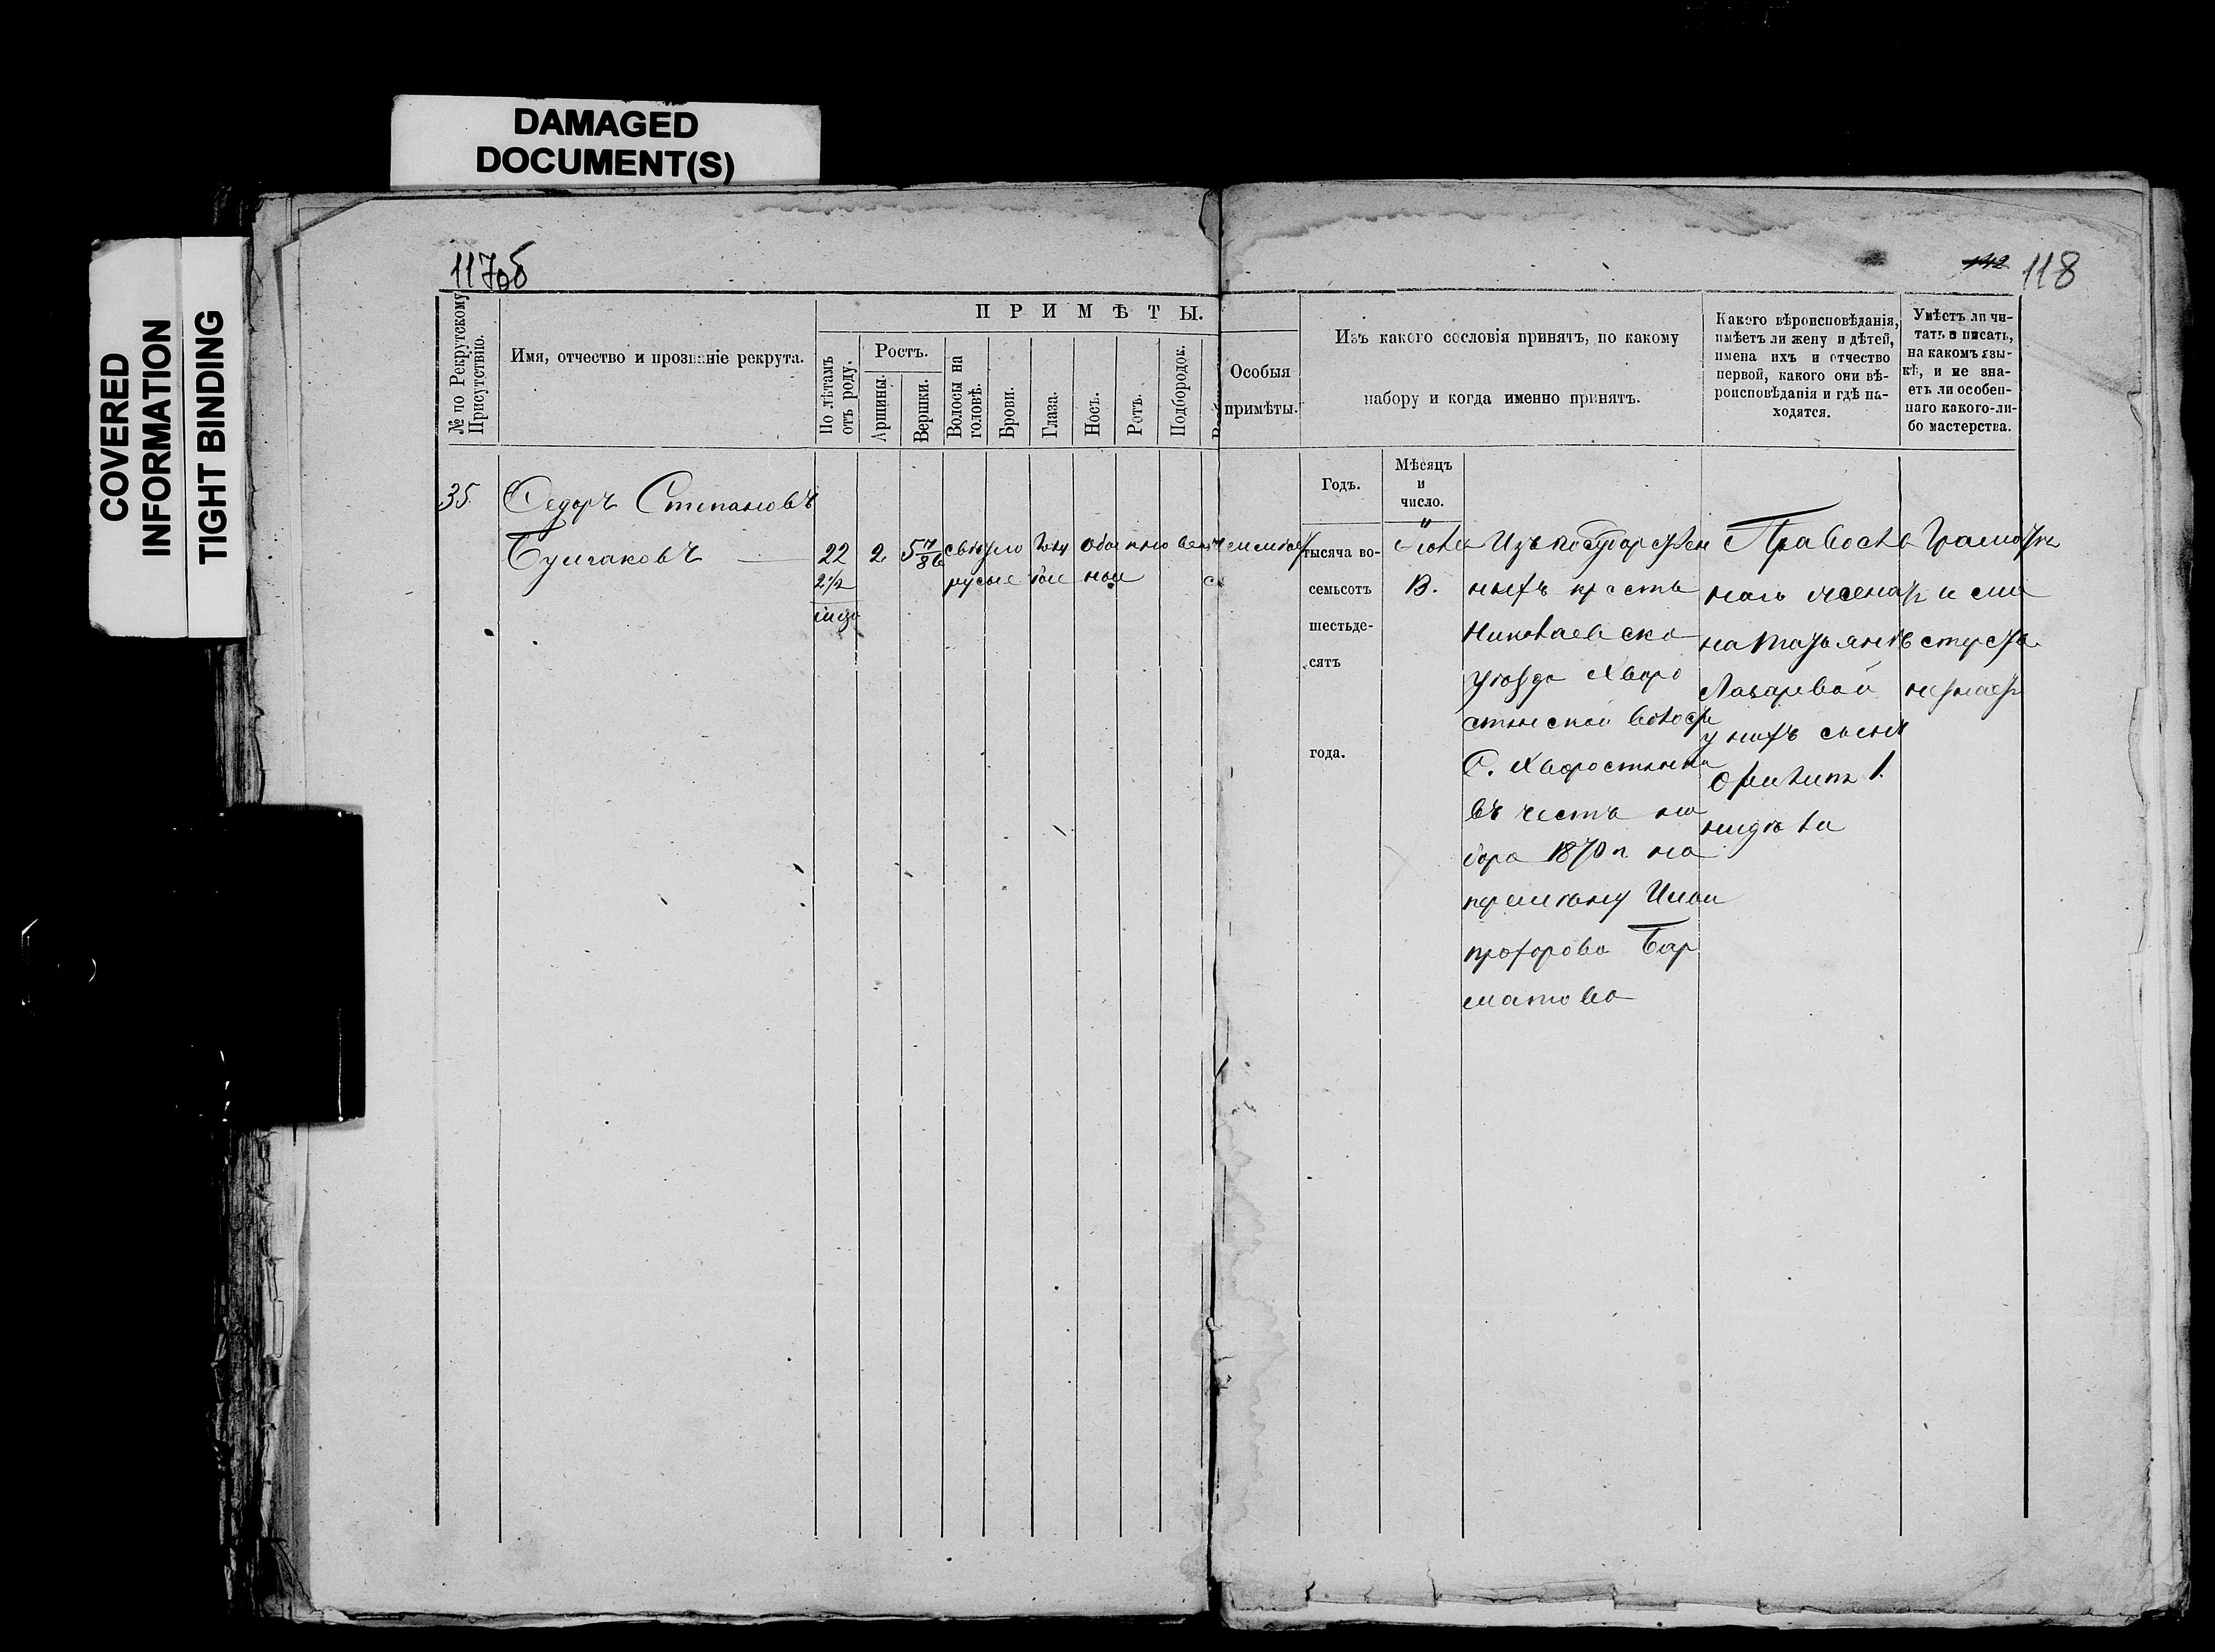 DAMAGED
DOCUMENT(S)
COVERED
INFORMATION
TIGHT BINDING
117об
142 118
№ по Рекрутскому
Присутствію.
Имя, отчество и прозваніе рекрута.
ПРИМѢТЫ.
По лѣтамъ
отъ роду.
Ростъ.
Аршины.
Вершки.
Волосы на
головѣ.
Брови.
Глаза.
Носъ.
Ротъ.
Подбородок.
Особыя
примѣты.
Изъ какого сословія принятъ, по какому
набору и когда именно принятъ.
Какого вѣроисповѣданія,
имѣетъ ли жену и дѣтей,
имена ихъ и отчество
первой, какого они вѣ-
роисповѣданія и гдѣ на-
ходятся.
Умѣетъ ли чи-
тать и писать,
на какомъ язы-
кѣ, и не зна-
етъ ли особен-
наго какого-ли-
бо мастерства.
Годъ.
Мѣсяцъ
и
число.
35
Федоръ Степановъ
Булгаковъ
22
2 1/2
2
5 7/8
свѣтло
русые
голу
бые
тысяча во-
семьсотъ
шестьде-
сятъ
года.
13.
Изъ государствен
ныхъ крестьянъ
Николаевска
уѣзда Хворо
стянской волости
С. Хворостянки
въ честь на
бора 1870 г. на
племянну Ивана
прохорова Бар
матова
Православ
наго женатъ
на Татьянѣ
Лазаревой
у нихъ сынъ
Филипъ 1.
недѣли
Грамотенъ
и ма
стерства
незнаетъ